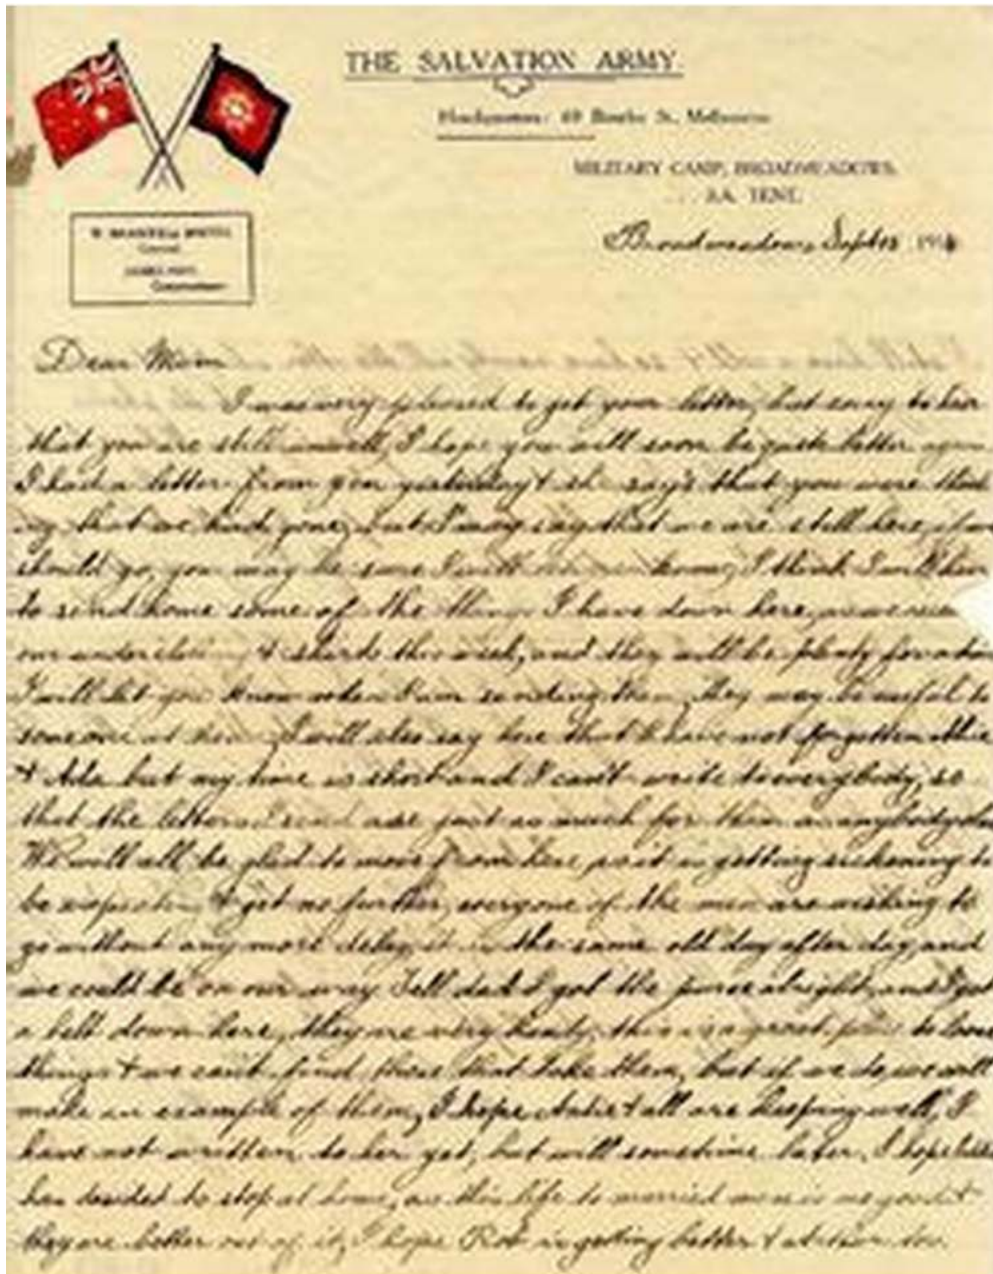 THE SALVATION ARMY
Headquarters: 69 Bourke St., Melbourne
MILITARY CAMP, BROADMEADOWS.
S.A. TENT.
Broadmeadows, Sept 191
Dear Mum
I was very pleased to get your letter, but sorry to hear
that you are still unwell, I hope you will soon be quite better again
I had a letter from yesterday & she says that you were think
ing that we had gone, but I may say that we are still here, if we
should go, you may be sure I will know, I think I will have
to send home some of the things I have down here, as we
our underclothing & shirts this week, and they will be plenty for
I will let you know when I am sending them, they may be useful to
someone at home, I will also say here that I have not forgotten
& Ada but my time is short and I can't write to everybody, so
that the letters I send are just as much for them as anybody
We will all be glad to move from here, as it is getting sickening to
be expecting & get no further, everyone of the men are wishing to
go without any more delay, it is the same old day after day, and
we could be on our way. Tell dad I got the purse alright, and I got
a belt down here, they are very handy, this is a great place to lose
things & we can't find those that take them, but if we do, we will
make an example of them, I hope & all are keeping well, I
have not written to her yet, but will sometime later, I hope
has decided to stop at home, as this life to married men is no good &
they are better out of it, I hope is getting better &